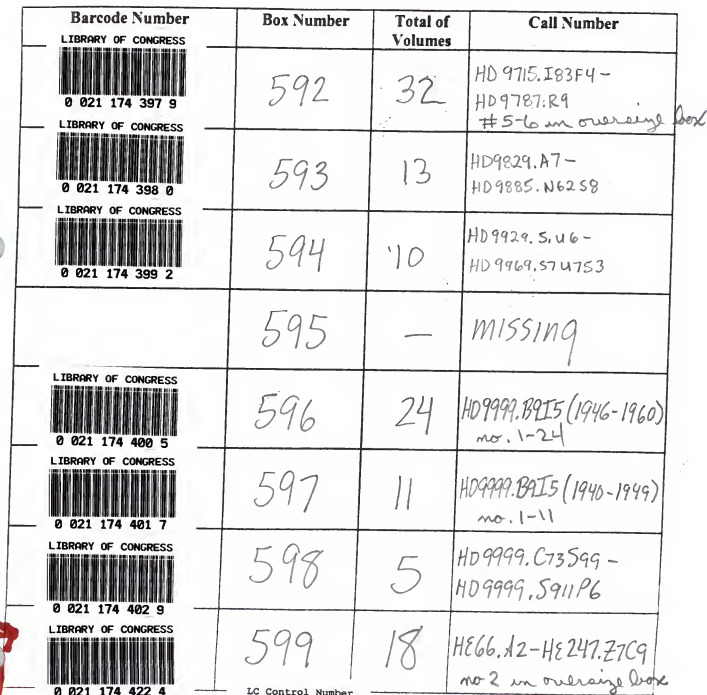 Barcode Number Box Number Total of Volumes Call Number
LIBRARY OF CONGRESS
0 021 174 397 9
592
32
HD 9715.I83F4 -
HD9787.R9
#5-6 in oversize box
LIBRARY OF CONGRESS
0 021 174 398 0
593
13
HD9829.A7-
HD9885.N62S8
LIBRARY OF CONGRESS
0 021 174 399 2
594
10
HD9929.5.U6-
HD9969.S7U753
595
—
missing
LIBRARY OF CONGRESS
0 021 174 400 5
596
24
HD9999.B9I5 (1946-1960)
no. 1-24
LIBRARY OF CONGRESS
0 021 174 401 7
597
11
HD9999.B9I5 (1940-1949)
no. 1-11
LIBRARY OF CONGRESS
0 021 174 402 9
598
5
HD9999.C73S99-
HD9999.S911P6
LIBRARY OF CONGRESS
0 021 174 422 4
599
18
HE66.A2-HE247.Z7C9
no 2 in oversize box
LC Control Number